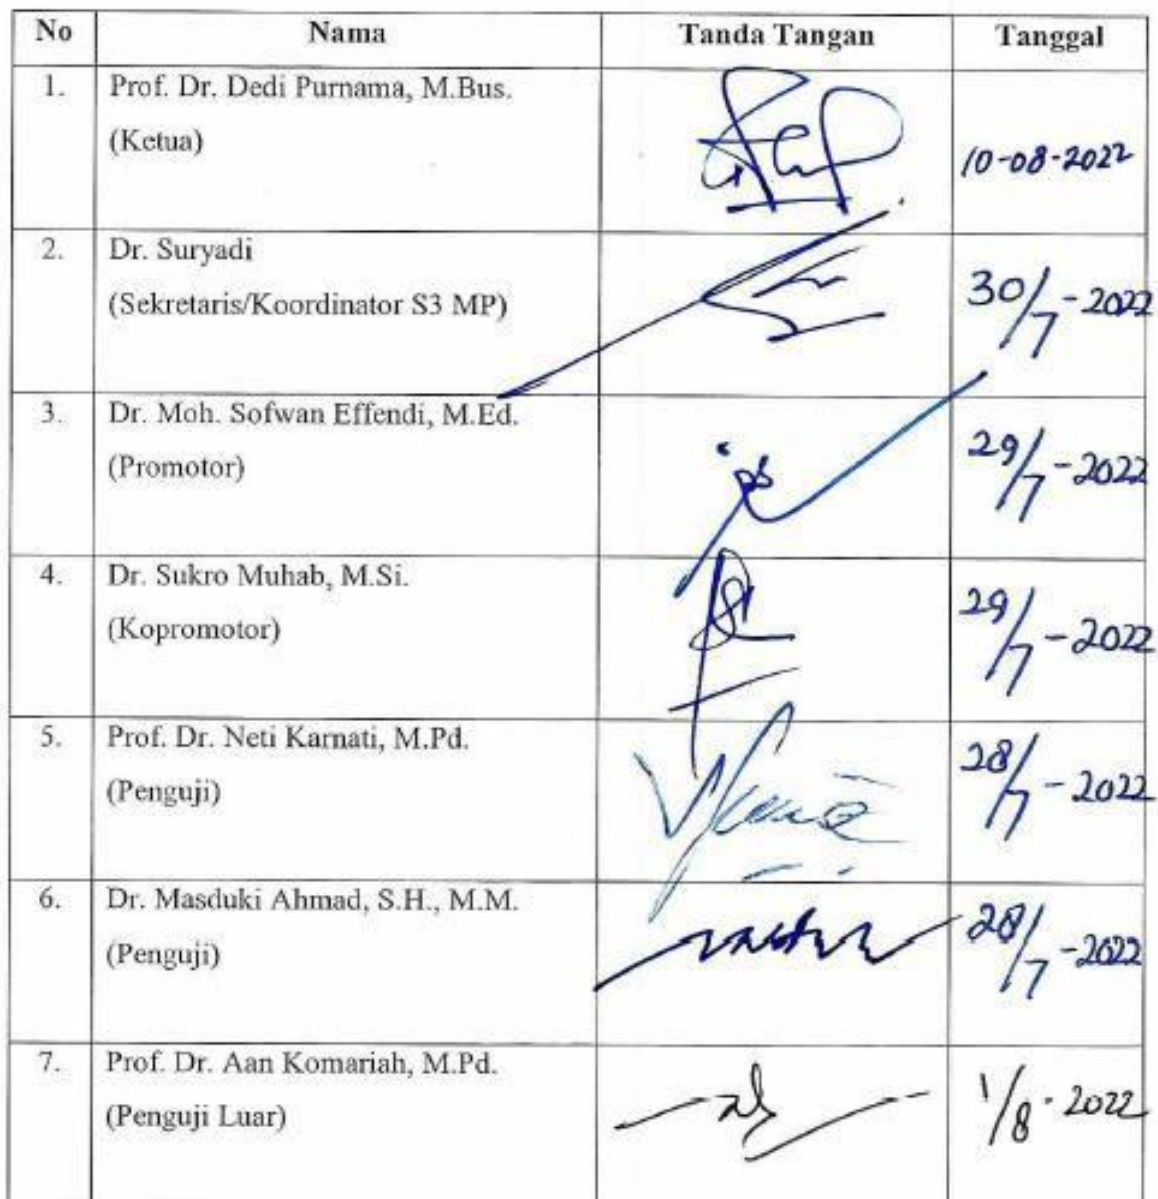 No Nama Tanda Tangan Tanggal
1. Prof. Dr. Dedi Purnama, M.Bus.
(Ketua)
10-08-2022
2. Dr. Suryadi
(Sekretaris/Koordinator S3 MP)
30/7-2022
3. Dr. Moh. Sofwan Effendi, M.Ed.
(Promotor)
29/7-2022
4. Dr. Sukro Muhab, M.Si.
(Kopromotor)
29/7-2022
5. Prof. Dr. Neti Karnati, M.Pd.
(Penguji)
28/7-2022
6. Dr. Masduki Ahmad, S.H., M.M.
(Penguji)
28/7-2022
7. Prof. Dr. Aan Komariah, M.Pd.
(Penguji Luar)
1/8-2022